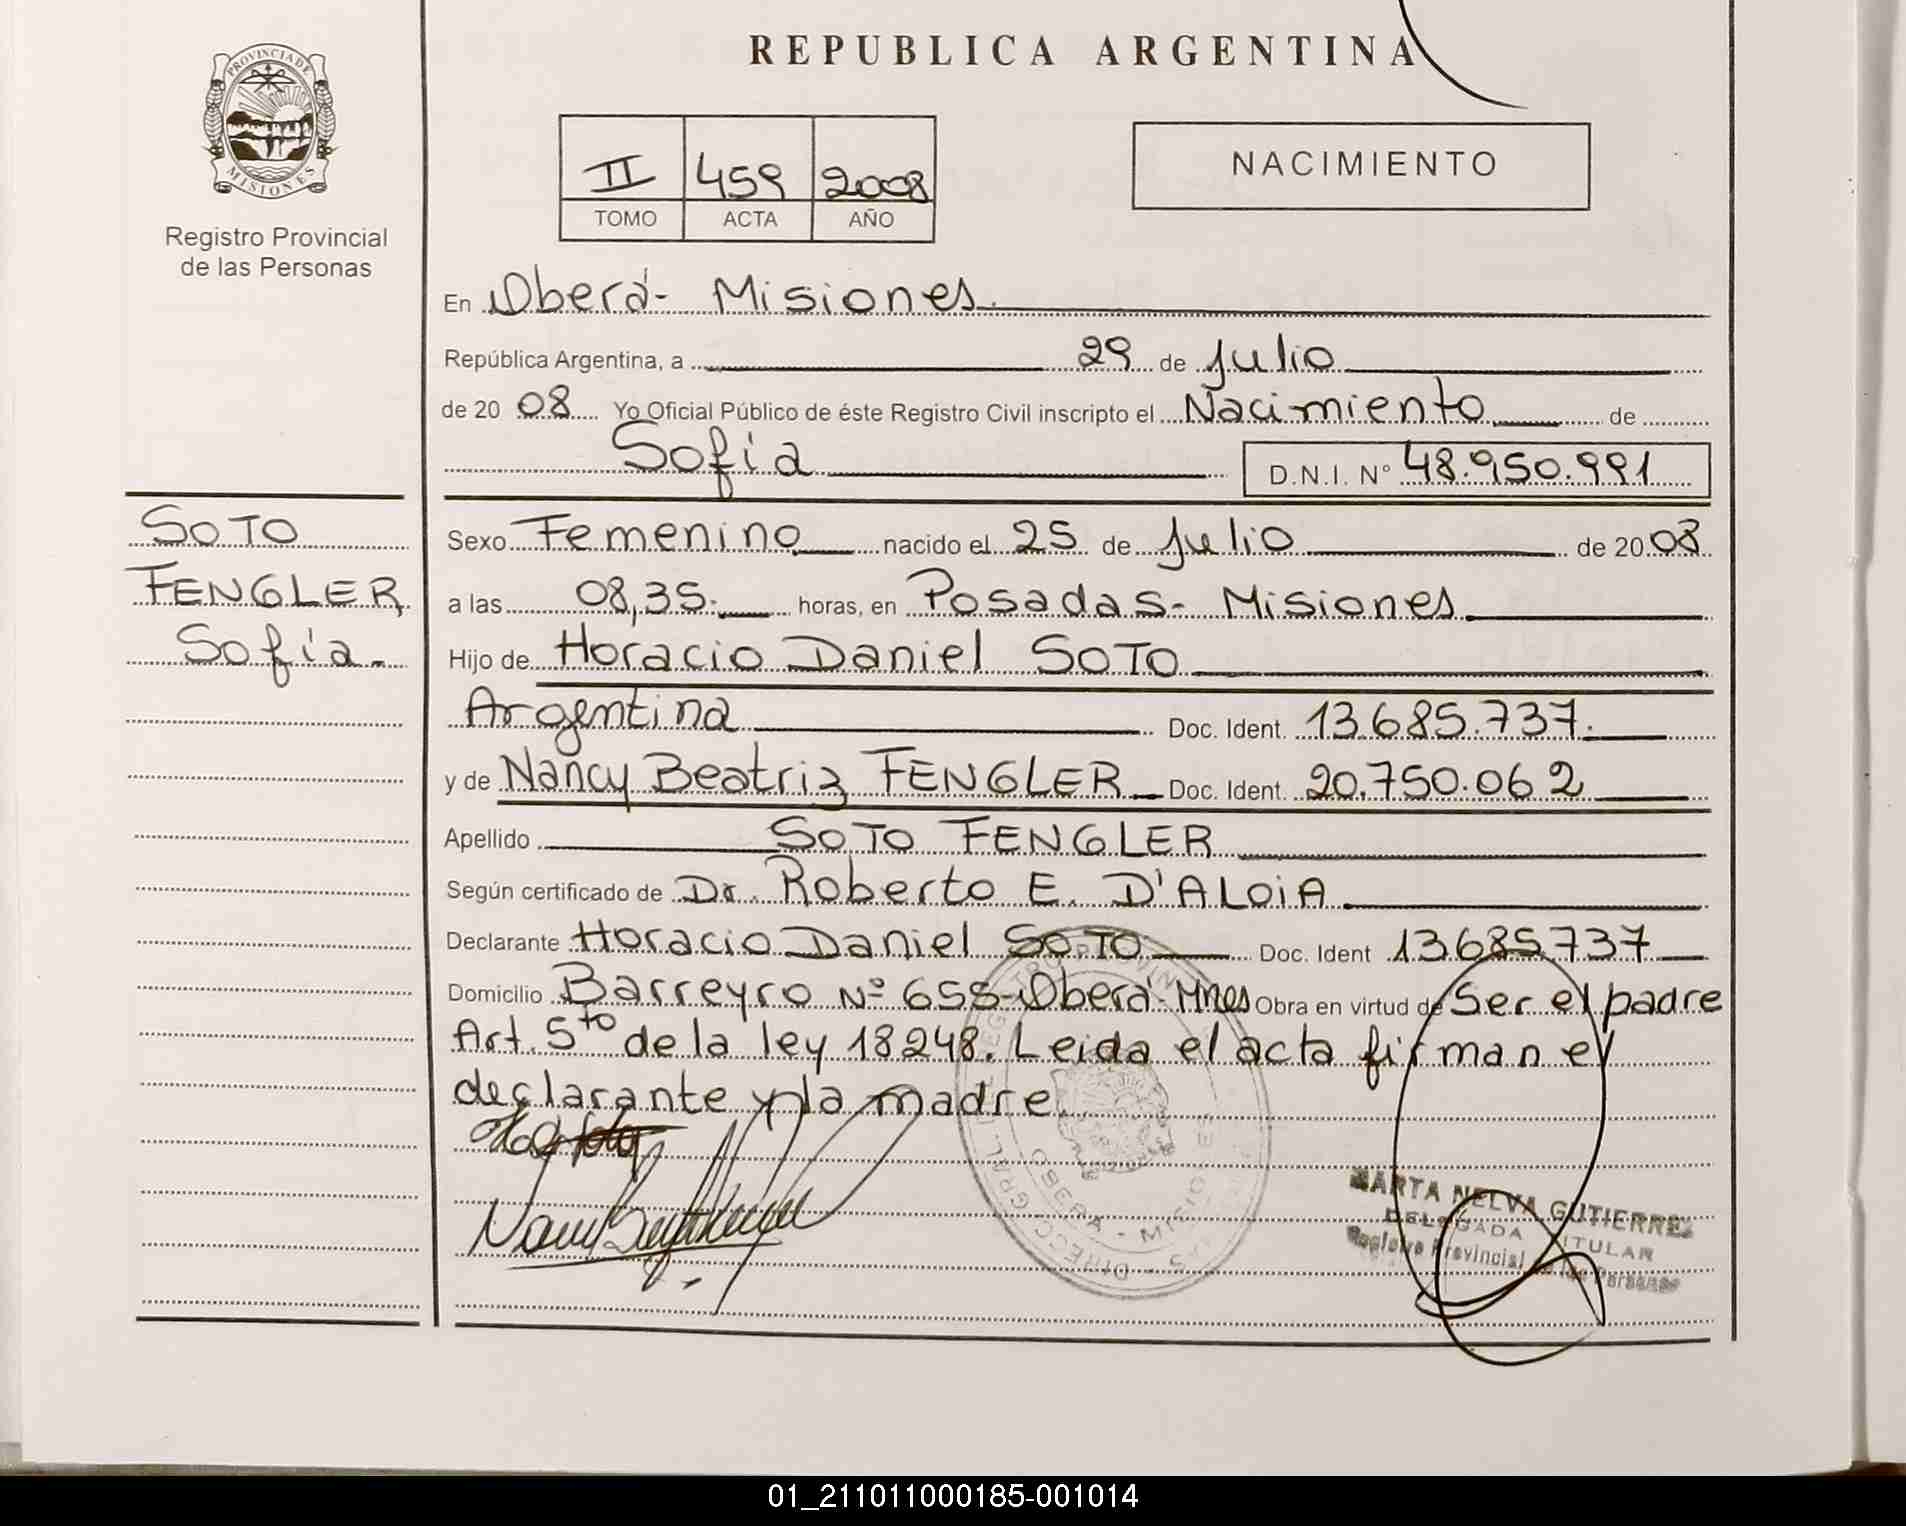 REPUBLICA ARGENTINA
PROVINCIA DE
MISIONES
Registro Provincial
de las Personas
II 459 2008
TOMO ACTA AÑO
NACIMIENTO
En Oberá- Misiones.
República Argentina, a 29 de Julio
de 20 08 Yo Oficial Público de éste Registro Civil inscripto el Nacimiento de
Sofía D.N.I. Nº 48.950.991
SOTO
FENGLER,
Sofía.
Sexo Femenino nacido el 25 de Julio de 20 08
a las 08,35. horas, en Posadas- Misiones
Hijo de Horacio Daniel SOTO
Argentina Doc. Ident. 13.685.737.
y de Nancy Beatriz FENGLER Doc. Ident. 20.750.062
Apellido SOTO FENGLER
Según certificado de Dr. Roberto E. D'ALOIA
Declarante Horacio Daniel SOTO Doc. Ident 13685737
Domicilio Barreyro Nº 655-Oberá-Mnes Obra en virtud de Ser el padre
Art. 5to de la ley 18248. Leida el acta firman el
declarante y la madre.
OBERA - MISIONES
MARTA NELVA GUTIERREZ
DELEGADA TITULAR
Registro Provincial de las Personas
01_211011000185-001014